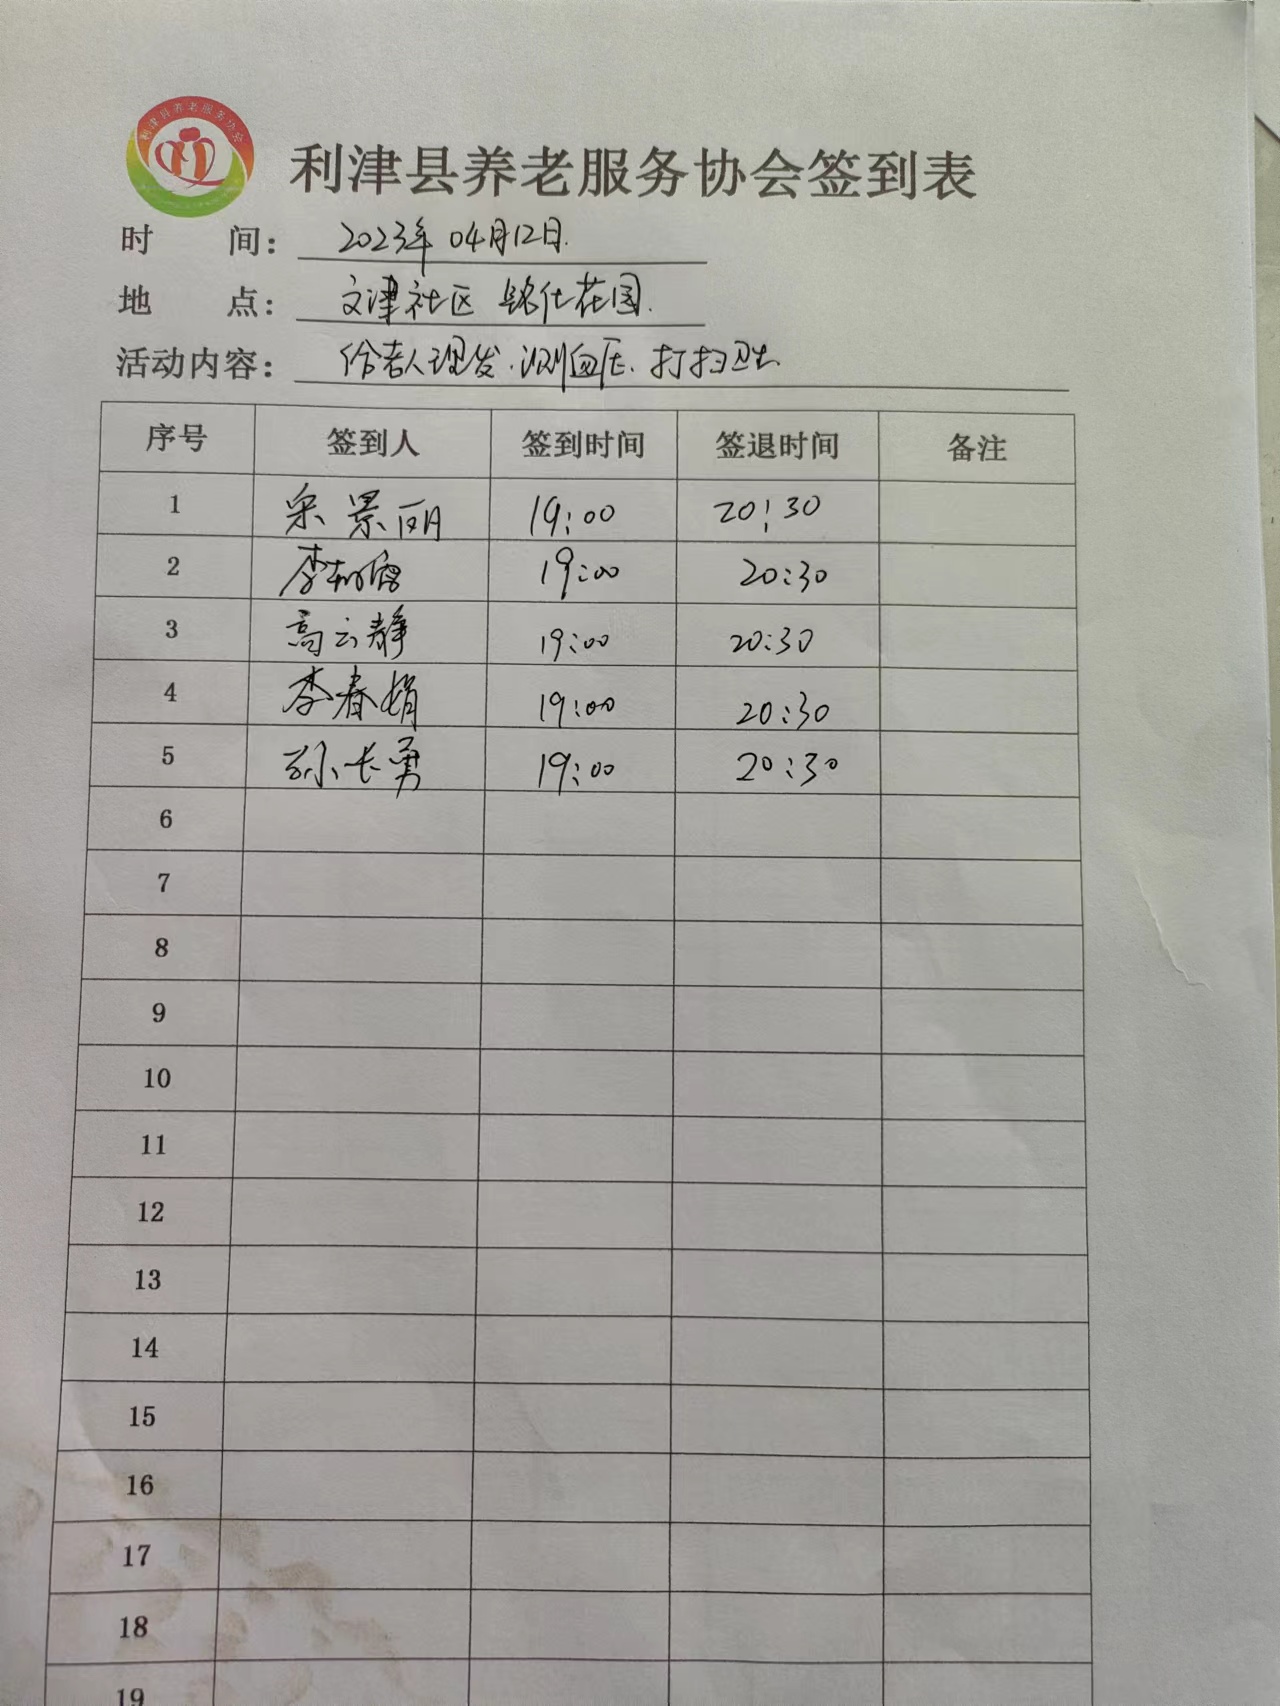 利津县养老服务协会
利津县养老服务协会签到表
时 间: 2023年04月12日.
地 点: 文津社区 铭仕花园.
活动内容: 给老人理发.测血压.打扫卫生
序号 签到人 签到时间 签退时间 备注
1 宋景丽 19:00 20:30
2 李 19:00 20:30
3 高云静 19:00 20:30
4 李春娟 19:00 20:30
5 孙长勇 19:00 20:30
6
7
8
9
10
11
12
13
14
15
16
17
18
19